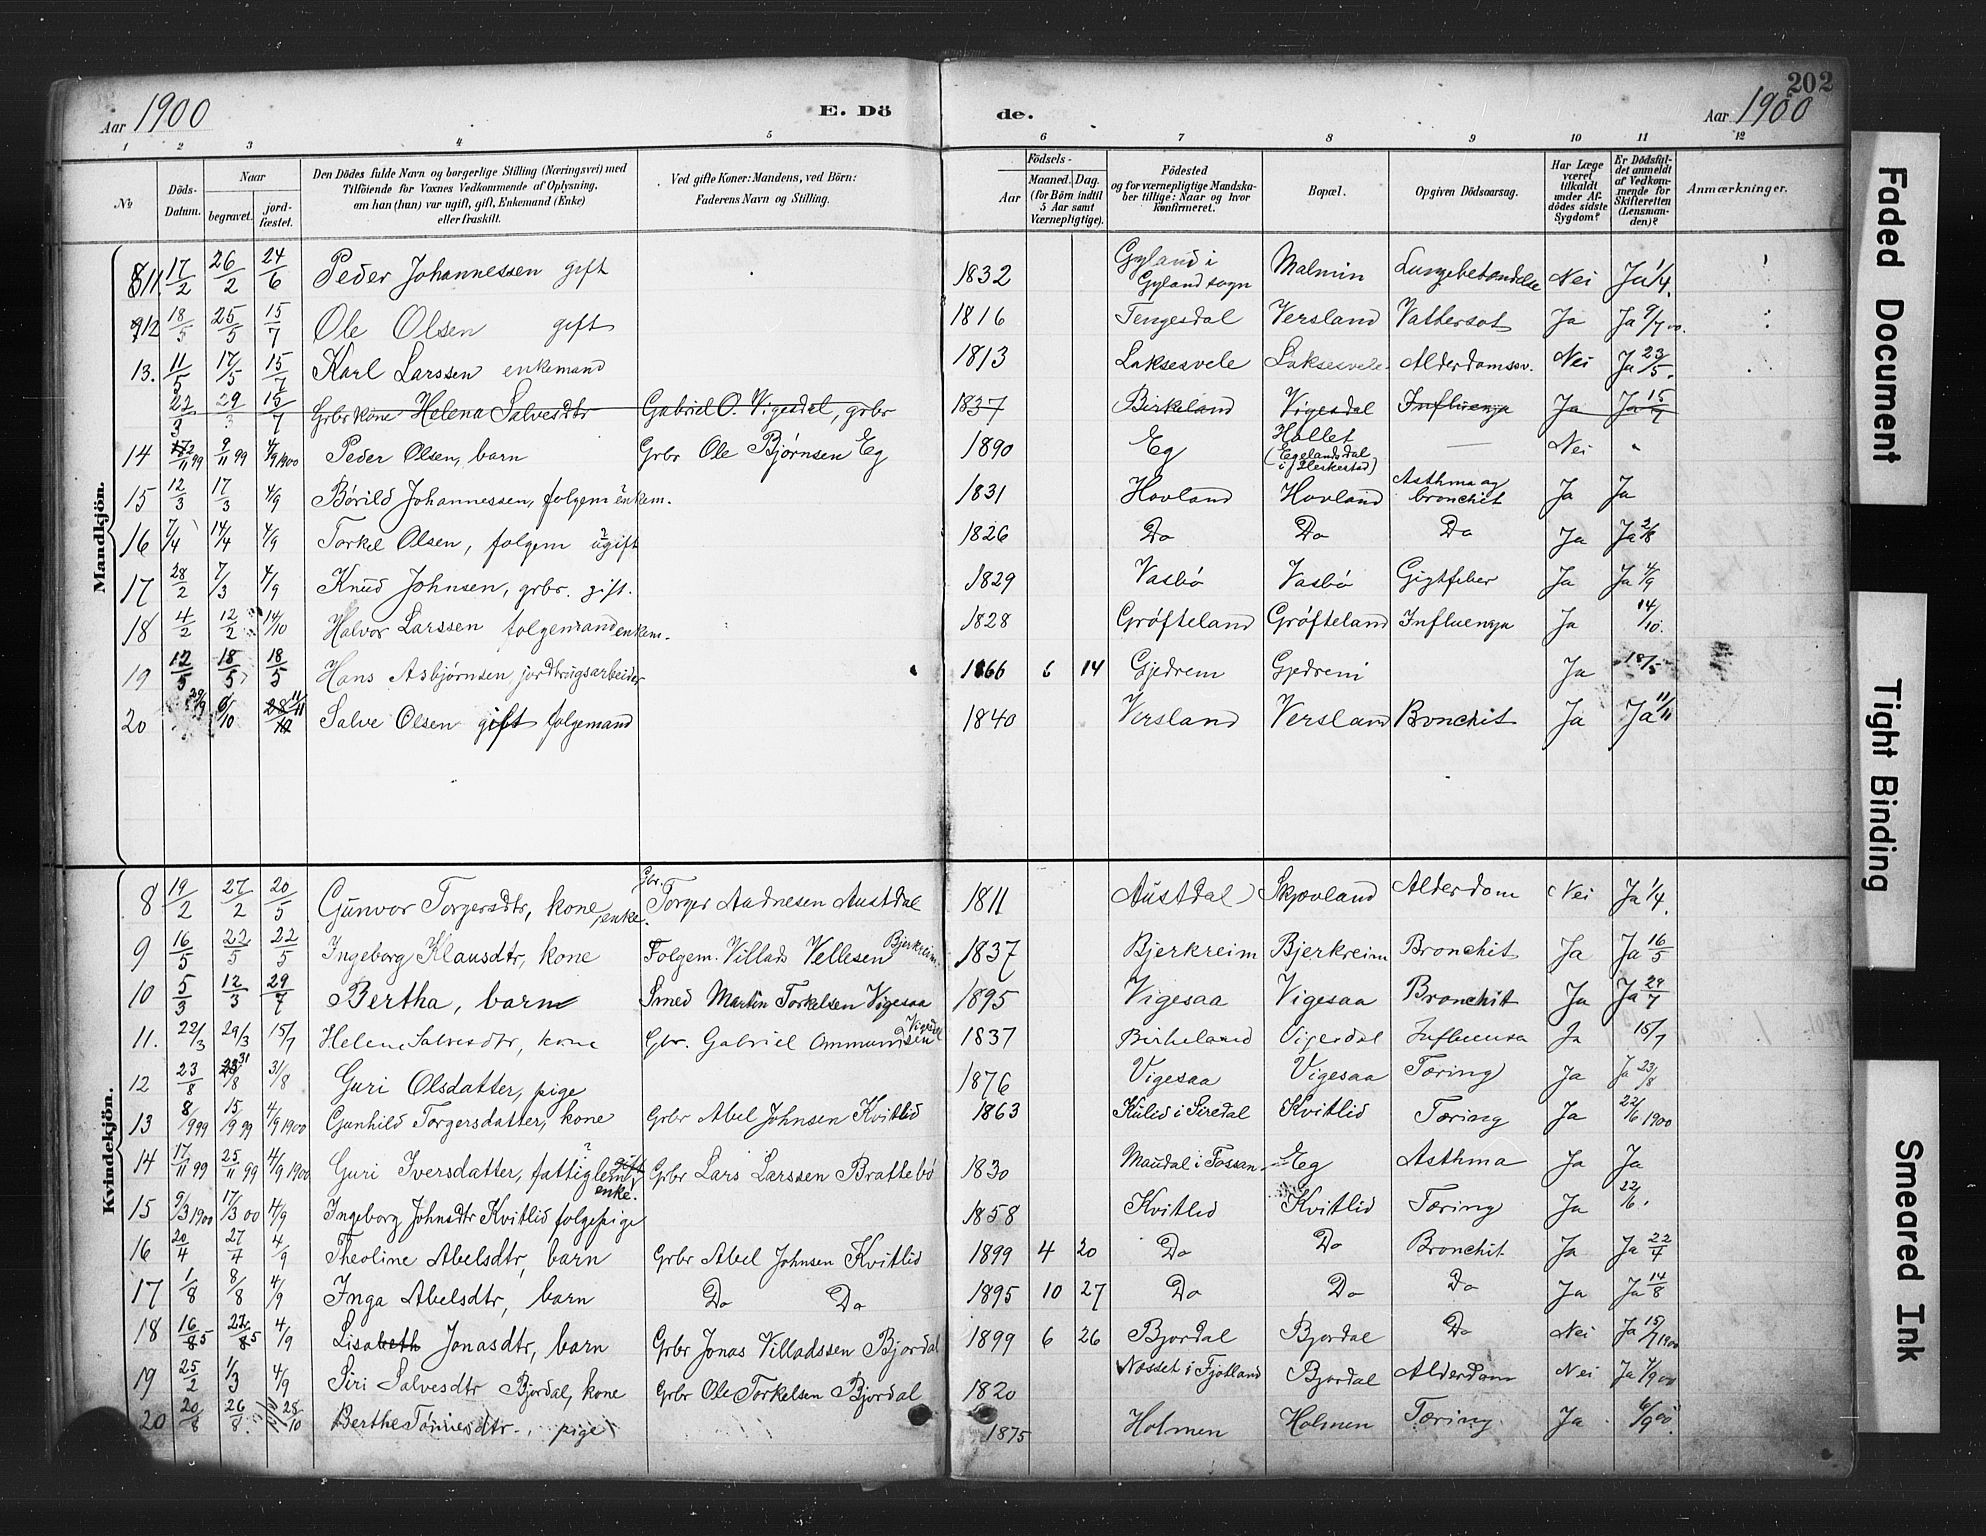 202
Aar 1900 E. Dö de. Aar 1900
1 2 3 4 5 6 7 8 9 10 11 12
No Döds-Datum. Naar begravet. jord-fæstet. Den Dödes fulde Navn og borgerlige Stilling (Næringsvei) med Tilföiende for Voxnes Vedkommende af Oplysning, om han (hun) var ugift, gift, Enkemand (Enke) eller fraskilt. Ved gifte Koner: Mandens, ved Börn: Faderens Navn og Stilling. Födsels- Aar Maaned. Dag. (for Börn indtil 5 Aar samt Værnepligtige). Födested og for værnepligtige Mandskaber tillige: Naar og hvor konfirmeret. Bopæl. Opgiven Dödsaarsag. Har Læge været tilkaldt under Afdödes sidste Sygdom? Er Dödsfaldet anmeldt af Vedkommende for Skifteretten (Lensmanden)? Anmærkninger.
Mandkjön.
11. 17/2 26/2 24/6 Peder Johannessen gift 1832 Gyland i Gyland sogn Malmin Lungebetændelse Nei Ja 1/4.
12 18/5 25/5 15/7 Ole Olsen gift 1816 Tengesdal Versland Vattersot Ja Ja 9/7 00.
13. 11/5 17/5 15/7 Karl Larssen enkemand 1813 Laksesvele Laksesvele Alderdomssv. Nei Ja 23/5.
22/3 29/3 15/7 Grbr kone Helena Salvesdtr Gabriel O. Vigesdal, grbr 1837 Birkeland Vigesdal Influenza Ja Ja 15/7
14 2/11 99 9/11 99 4/9 1900 Peder Olsen, barn Grbr Ole Bjørnsen Eg 1890 Eg Hollet (Egelandsdal i Herkestad) — Nei "
15 12/3 17/3 4/9 Børild Johannessen, folgem enkem. 1831 Hovland Hovland Asthma og bronchit Ja Ja
16 7/4 14/4 4/9 Torkel Olsen, folgem ugift 1826 Do Do Do Ja Ja 2/8
17 28/2 7/3 4/9 Knud Johnsen, grbr. gift. 1829 Vasbø Vasbø Gigtfeber Ja Ja 4/9
18 4/2 12/2 14/10 Halvor Larssen folgemand enkem. 1828 Grøfteland Grøfteland Influenza Ja 14/10.
19 12/5 18/5 18/5 Hans Asbjørnsen jordbrugsarbeider 1866 6 14 Gjedrem Gjedrem Ja 18/5
20 29/9 6/10 11/11 Salve Olsen gift folgemand 1840 Versland Versland Bronchit Ja Ja 11/11
Kvindekjön.
8 19/2 27/2 20/5 Gunvor Torgersdtr, kone, enke. Gbr. Torger Aadnesen Austdal 1811 Austdal Skjævland Alderdom Nei Ja 1/4.
9 16/5 22/5 22/5 Ingeborg Klausdtr, kone Folgem. Villads Vellesen Bjerkreim. 1837 Bjerkreim Bjerkreim Bronchit Ja Ja 16/5
10 5/3 12/3 29/7 Bertha, barn Smed Martin Torkelsen Vigesaa 1895 Vigesaa Vigesaa Bronchit Ja Ja 29/7
11. 22/3 29/3 15/7 Helene Salvesdtr, kone Gbr. Gabriel Ommundsen Vigesdal 1837 Birkeland Vigesdal Influensa Ja 15/7
12 23/8 31/8 31/8 Guri Olsdatter, pige 1876 Vigesaa Vigesaa Tæring Ja Ja 23/8
13 8/9 99 15/9 99 4/9 1900 Gunhild Torgersdatter, kone Grbr Abel Johnsen Kvitlid 1863 Kulid i Siredal Kvitlid Tæring Ja 22/6 1900
14 17/11 99 25/11 99 4/9 1900 Guri Iversdatter, fattiglem, gift enke. Grbr Lars Larssen Brattebø 1830 Maudal i Fossan Eg Asthma Ja Ja
15 9/3 1900 17/3 00 4/9 Ingeborg Johnsdtr Kvitlid folgepige 1858 Kvitlid Kvitlid Tæring Ja 22/6.
16 20/4 27/4 4/9 Theoline Abelsdtr, barn Grbr Abel Johnsen Kvitlid 1899 4 20 Do Do Bronchit Ja Ja 22/4
17 1/8 8/8 4/9 Inga Abelsdtr, barn Do Do 1895 10 27 Do Do Do Ja Ja 14/8
18 16/5 4/9 Lisabeth Jonasdtr, barn Grbr Jonas Villadssen Bjordal 1899 6 26 Bjordal Bjordal Do Nei Ja 15/7 1900
19 25/2 1/3 4/9 Siri Salvesdtr Bjordal, kone Grbr Ole Torkelsen Bjordal 1820 Nosset i Fjotland Bjordal Alderdom Nei Ja 4/9 00
20 20/8 26/8. 28/10 Berthe Tønnesdtr., pige 1875 Holmen Holmen Tæring Ja 6/9 00.
Faded Document
Tight Binding
Smeared Ink